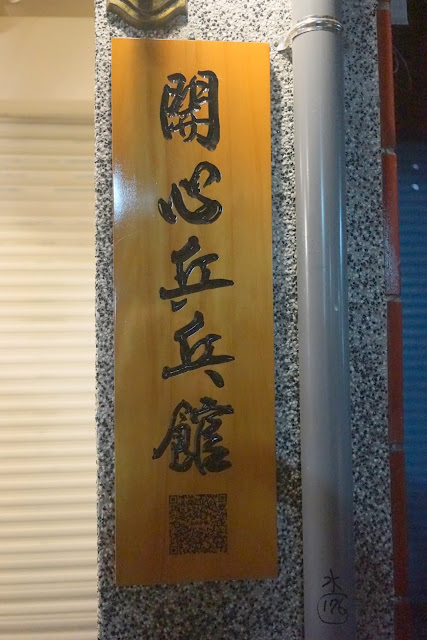 開心乒乓館
水
176